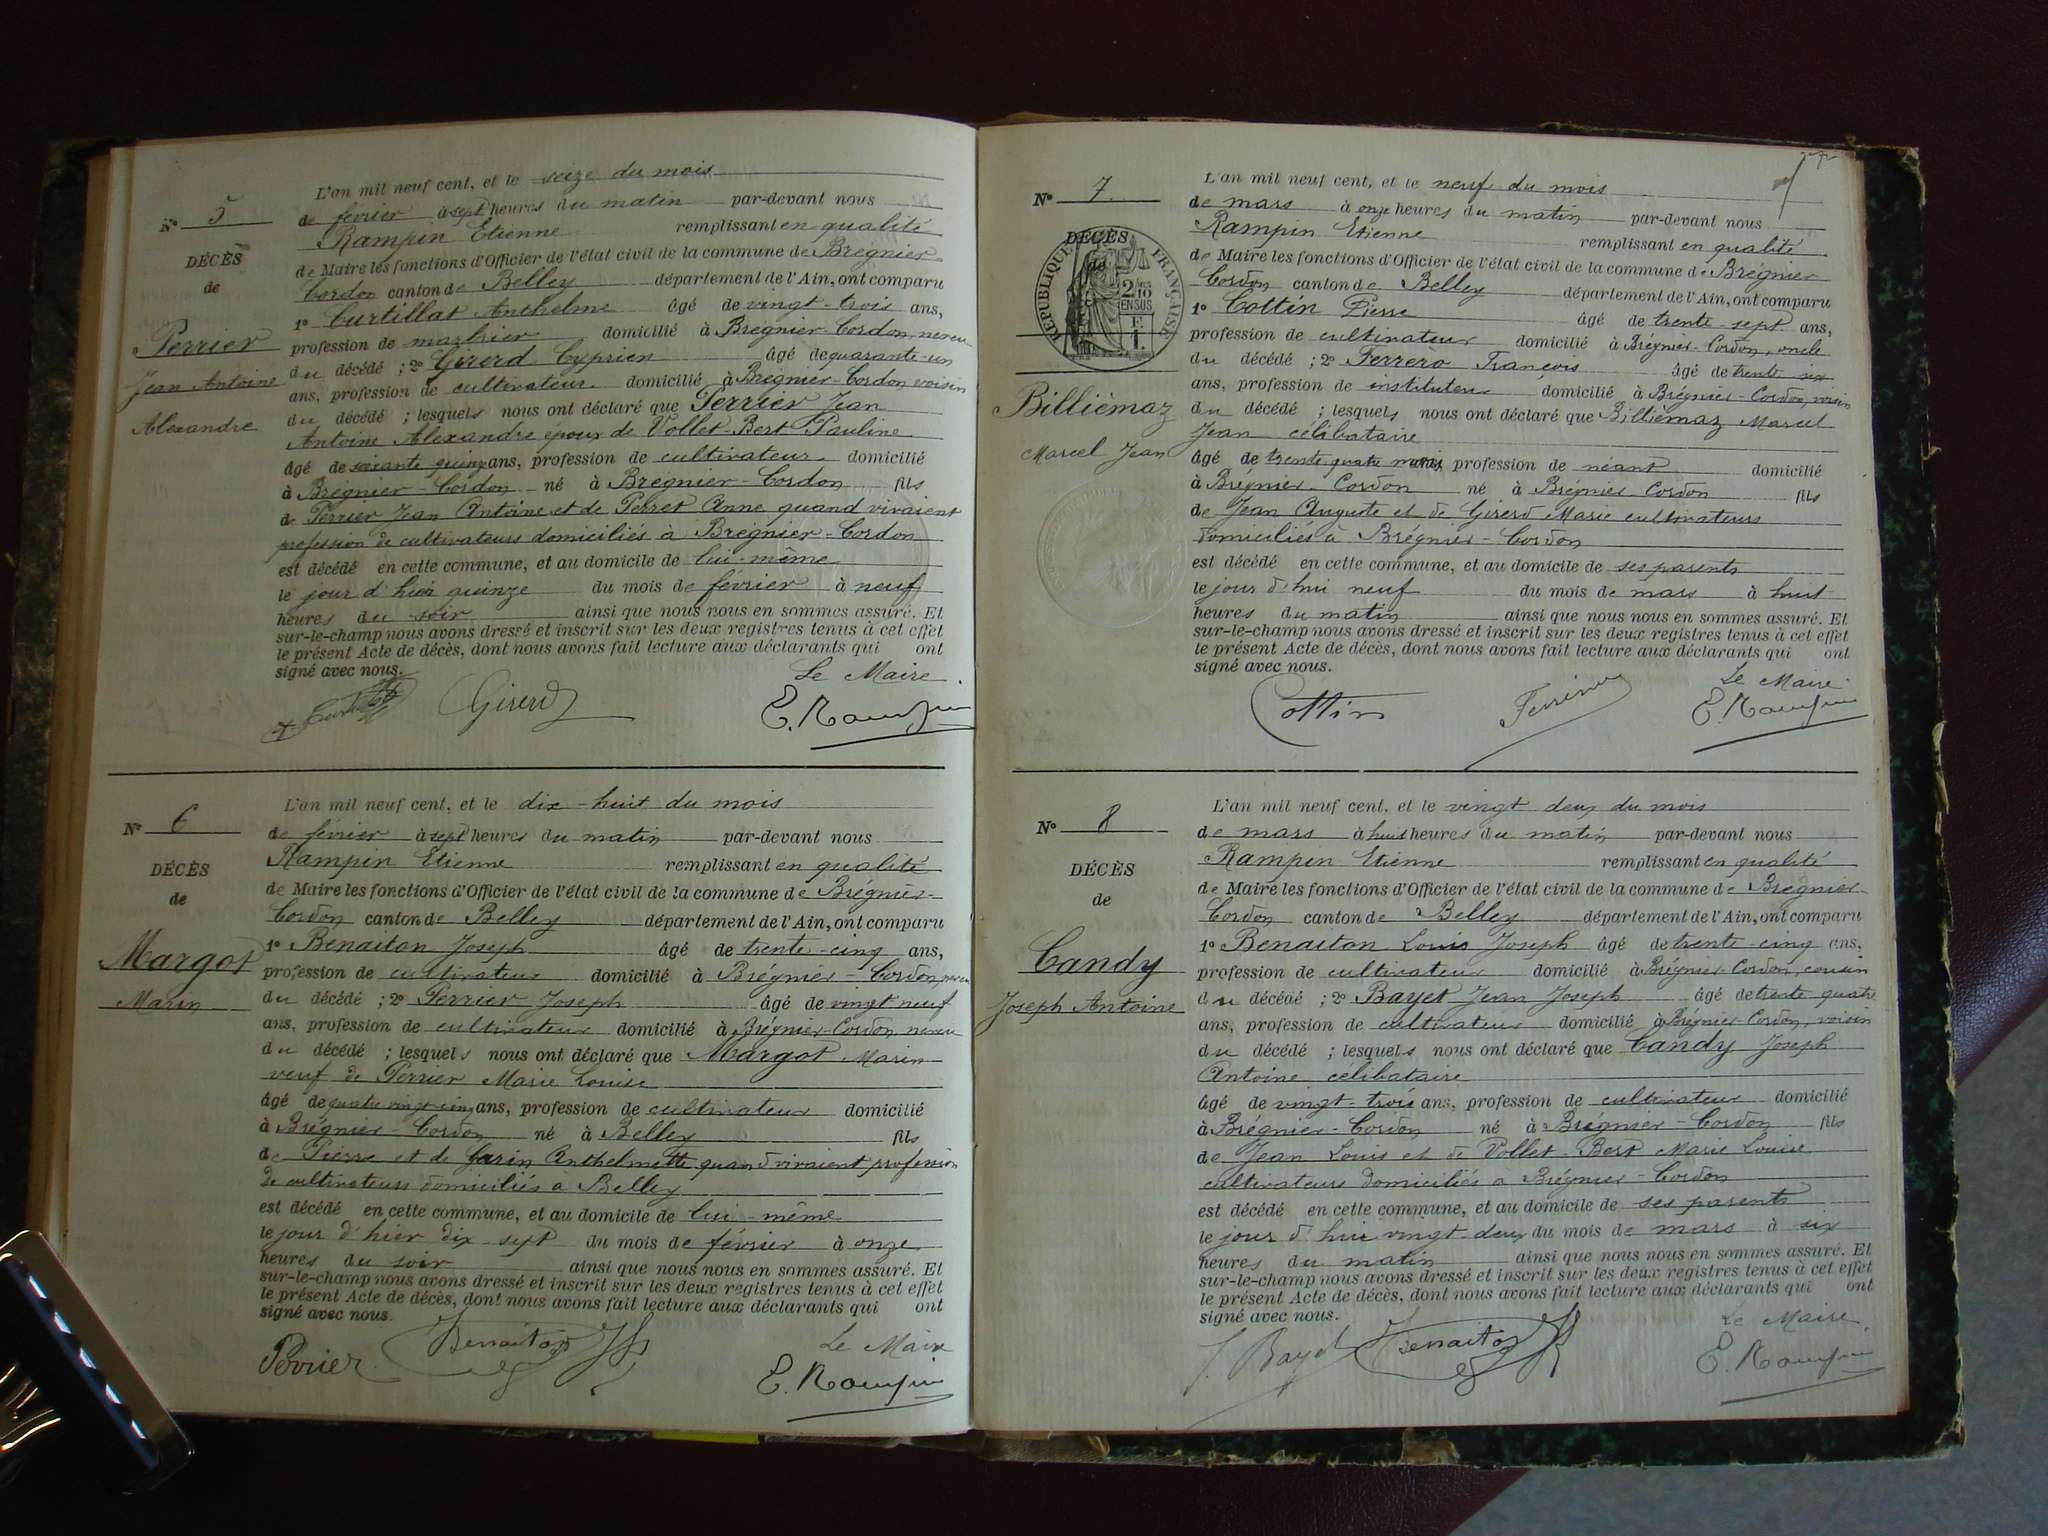 N° 5
DÉCÈS
de
Perrier
Jean Antoine
Alexandre
L'an mil neuf cent, et le seize du mois
de février à sept heures du matin par-devant nous
Rampin Etienne remplissant en qualité
de Maire les fonctions d'Officier de l'état civil de la commune de Brégnier
Cordon canton de Belley département de l'Ain, ont comparu
1° Curtillat Anthelme âgé de vingt-trois ans,
profession de marbrier domicilié à Brégnier-Cordon, neveu
du décédé ; 2° Girerd Cyprien âgé de quarante-un
ans, profession de cultivateur domicilié à Brégnier-Cordon voisin
du décédé ; lesquels nous ont déclaré que Perrier Jean
Antoine Alexandre époux de Vollet-Bert Pauline
âgé de soixante quinze ans, profession de cultivateur domicilié
à Brégnier-Cordon né à Brégnier-Cordon fils
de Perrier Jean Antoine et de Perret Anne quand vivaient
profession de cultivateurs domiciliés à Brégnier-Cordon
est décédé en cette commune, et au domicile de lui-même
le jour d'hier quinze du mois de février à neuf
heures du soir ainsi que nous nous en sommes assuré. Et
sur-le-champ nous avons dressé et inscrit sur les deux registres tenus à cet effet
le présent Acte de décès, dont nous avons fait lecture aux déclarants qui ont
signé avec nous.
Le Maire
Girerd E. Rampin
N° 6
DÉCÈS
de
Margot
Marin
L'an mil neuf cent, et le dix-huit du mois
de février à sept heures du matin par-devant nous
Rampin Etienne remplissant en qualité
de Maire les fonctions d'Officier de l'état civil de la commune de Brégnier-
Cordon canton de Belley département de l'Ain, ont comparu
1° Benaiton Joseph âgé de trente-cinq ans,
profession de cultivateur domicilié à Brégnier-Cordon, neveu
du décédé ; 2° Perrier Joseph âgé de vingt neuf
ans, profession de cultivateur domicilié à Brégnier-Cordon, neveu
du décédé ; lesquels nous ont déclaré que Margot Marin
veuf de Perrier Marie Louise
âgé de quatre vingt cinq ans, profession de cultivateur domicilié
à Brégnier-Cordon né à Belley fils
de Pierre et de Garin Anthelmette quand vivaient profession
de cultivateurs domiciliés à Belley
est décédé en cette commune, et au domicile de lui-même
le jour d'hier dix-sept du mois de février à onze
heures du soir ainsi que nous nous en sommes assuré. Et
sur-le-champ nous avons dressé et inscrit sur les deux registres tenus à cet effet
le présent Acte de décès, dont nous avons fait lecture aux déclarants qui ont
signé avec nous.
Le Maire
Perrier Benaiton E. Rampin
N° 7
DÉCÈS
de
RÉPUBLIQUE FRANÇAISE
2/10 EN SUS
F. 1.
Billiémaz
Marcel Jean
L'an mil neuf cent, et le neuf du mois
de mars à onze heures du matin par-devant nous
Rampin Etienne remplissant en qualité
de Maire les fonctions d'Officier de l'état civil de la commune de Brégnier
Cordon canton de Belley département de l'Ain, ont comparu
1° Cottin Pierre âgé de trente-sept ans,
profession de cultivateur domicilié à Brégnier-Cordon, oncle
du décédé ; 2° Ferrero François âgé de trente six
ans, profession de instituteur domicilié à Brégnier-Cordon, voisin
du décédé ; lesquels nous ont déclaré que Billiémaz Marcel
Jean célibataire
âgé de trente quatre mois, profession de néant domicilié
à Brégnier-Cordon né à Brégnier-Cordon fils
de Jean Auguste et de Girerd Marie cultivateurs
domiciliés à Brégnier-Cordon
est décédé en cette commune, et au domicile de ses parents
le jour d'hui neuf du mois de mars à huit
heures du matin ainsi que nous nous en sommes assuré. Et
sur-le-champ nous avons dressé et inscrit sur les deux registres tenus à cet effet
le présent Acte de décès, dont nous avons fait lecture aux déclarants qui ont
signé avec nous.
Le Maire
Cottin E. Rampin
N° 8
DÉCÈS
de
Candy
Joseph Antoine
L'an mil neuf cent, et le vingt deux du mois
de mars à huit heures du matin par-devant nous
Rampin Etienne remplissant en qualité
de Maire les fonctions d'Officier de l'état civil de la commune de Brégnier-
Cordon canton de Belley département de l'Ain, ont comparu
1° Benaiton Louis Joseph âgé de trente-cinq ans,
profession de cultivateur domicilié à Brégnier-Cordon, cousin
du décédé ; 2° Bayet Jean Joseph âgé de trente quatre
ans, profession de cultivateur domicilié à Brégnier-Cordon, voisin
du décédé ; lesquels nous ont déclaré que Candy Joseph
Antoine célibataire
âgé de vingt-trois ans, profession de cultivateur domicilié
à Brégnier-Cordon né à Brégnier-Cordon fils
de Jean Louis et de Vollet-Bert Marie Louise
cultivateurs domiciliés à Brégnier-Cordon
est décédé en cette commune, et au domicile de ses parents
le jour d'hui vingt-deux du mois de mars à six
heures du matin ainsi que nous nous en sommes assuré. Et
sur-le-champ nous avons dressé et inscrit sur les deux registres tenus à cet effet
le présent Acte de décès, dont nous avons fait lecture aux déclarants qui ont
signé avec nous.
Le Maire
J. Bayet Benaiton E. Rampin